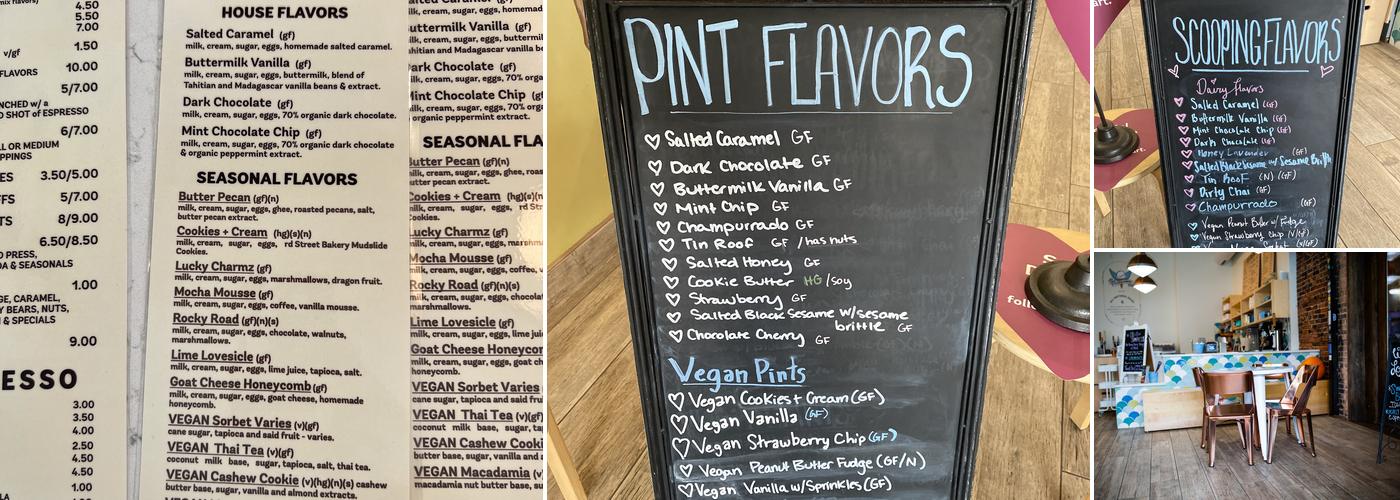 4.50
5.50
7.00
1.50
v/gf
10.00
FLAVORS
5/7.00
NCHED w/ a
D SHOT of ESPRESSO
6/7.00
LL OR MEDIUM
PPINGS
ES 3.50/5.00
FS 5/7.00
TS 8/9.00
6.50/8.50
D PRESS,
A & SEASONALS
1.00
GE, CARAMEL,
Y BEARS, NUTS,
& SPECIALS
9.00
ESSO
3.00
3.50
4.00
2.50
4.50
4.50
1.00
HOUSE FLAVORS
Salted Caramel (gf)
milk, cream, sugar, eggs, homemade salted caramel.
Buttermilk Vanilla (gf)
milk, cream, sugar, eggs, buttermilk, blend of
Tahitian and Madagascar vanilla beans & extract.
Dark Chocolate (gf)
milk, cream, sugar, eggs, 70% organic dark chocolate.
Mint Chocolate Chip (gf)
milk, cream, sugar, eggs, 70% organic dark chocolate
& organic peppermint extract.
SEASONAL FLAVORS
Butter Pecan (gf)(n)
milk, cream, sugar, eggs, ghee, roasted pecans, salt,
butter pecan extract.
Cookies + Cream (hg)(s)(n)
milk, cream, sugar, eggs, rd Street Bakery Mudslide
Cookies.
Lucky Charmz (gf)
milk, cream, sugar, eggs, marshmallows, dragon fruit.
Mocha Mousse (gf)
milk, cream, sugar, eggs, coffee, vanilla mousse.
Rocky Road (gf)(n)(s)
milk, cream, sugar, eggs, chocolate, walnuts,
marshmallows.
Lime Lovesicle (gf)
milk, cream, sugar, eggs, lime juice, tapioca, salt.
Goat Cheese Honeycomb (gf)
milk, cream, sugar, eggs, goat cheese, homemade
honeycomb.
VEGAN Sorbet Varies (v)(gf)
cane sugar, tapioca and said fruit - varies.
VEGAN Thai Tea (v)(gf)
coconut milk base, sugar, tapioca, salt, thai tea.
VEGAN Cashew Cookie (v)(hg)(n)(s) cashew
butter base, sugar, vanilla and almond extracts.
Buttermilk Vanilla (gf)
milk, cream, sugar, eggs, butterm
Tahitian and Madagascar vanilla be
Dark Chocolate (gf)
milk, cream, sugar, eggs, 70% orga
Mint Chocolate Chip (gf)
milk, cream, sugar, eggs, 70% orga
& organic peppermint extract.
SEASONAL FLA
Butter Pecan (gf)(n)
milk, cream, sugar, eggs, ghee, roas
butter pecan extract.
Cookies + Cream (hg)(s)(n)
milk, cream, sugar, eggs, rd Str
Cookies.
Lucky Charmz (gf)
milk, cream, sugar, eggs, marshm
Mocha Mousse (gf)
milk, cream, sugar, eggs, coffee, v
Rocky Road (gf)(n)(s)
milk, cream, sugar, eggs, chocolat
marshmallows.
Lime Lovesicle (gf)
milk, cream, sugar, eggs, lime juic
Goat Cheese Honeycom
milk, cream, sugar, eggs, goat ch
honeycomb.
VEGAN Sorbet Varies
cane sugar, tapioca and said fruit
VEGAN Thai Tea (v)(gf)
coconut milk base, sugar, tap
VEGAN Cashew Cooki
butter base, sugar, vanilla and
VEGAN Macadamia (v)
macadamia nut butter base, su
PINT FLAVORS
Salted Caramel GF
Dark Chocolate GF
Buttermilk Vanilla GF
Mint Chip GF
Champurrado GF
Tin Roof GF /has nuts
Salted Honey GF
Cookie Butter HG /soy
Strawberry GF
Salted Black Sesame w/sesame
brittle GF
Chocolate Cherry GF
Vegan Pints
Vegan Cookies + Cream (GF)
Vegan Vanilla (GF)
Vegan Strawberry Chip (GF)
Vegan Peanut Butter Fudge (GF/N)
Vegan Vanilla w/Sprinkles (GF)
SCOOPING FLAVORS
Dairy flavors
Salted Caramel (GF)
Buttermilk Vanilla (GF)
Mint Chocolate Chip (GF)
Dark Chocolate (GF)
Honey Lavender (GF)
Salted Black Sesame w/ Sesame Brittle
Tin Roof (N) (GF)
Dirty Chai (GF)
Champurrado (GF)
Vegan Peanut Butter w/ Fudge
Vegan Strawberry Chip (V/GF)